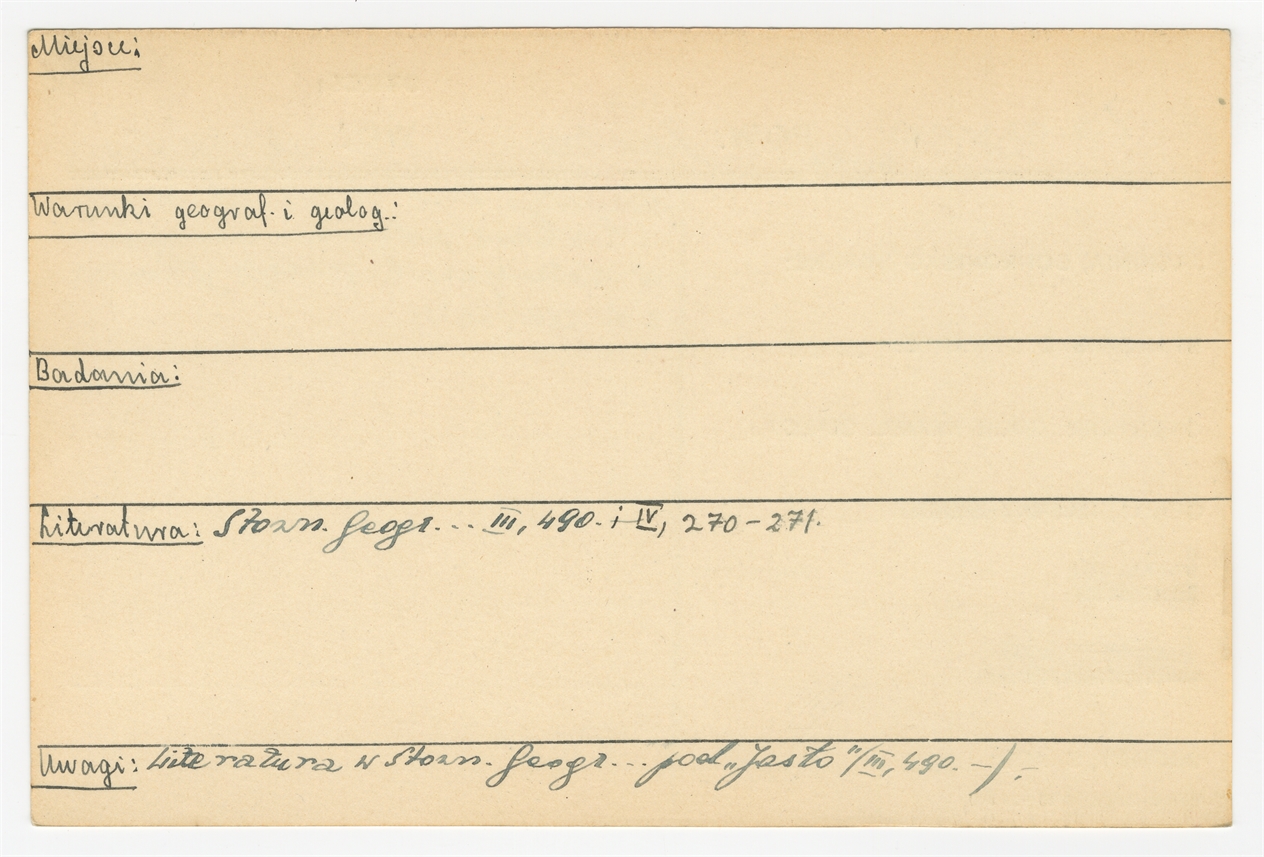 Miejsce:
Warunki geograf. i geolog.:
Badania:
Literatura: Słown. Geogr... III, 490. i IV, 270-271.
Uwagi: Literatura w Słown. Geogr... pod „Jasło” (III, 490. -).-